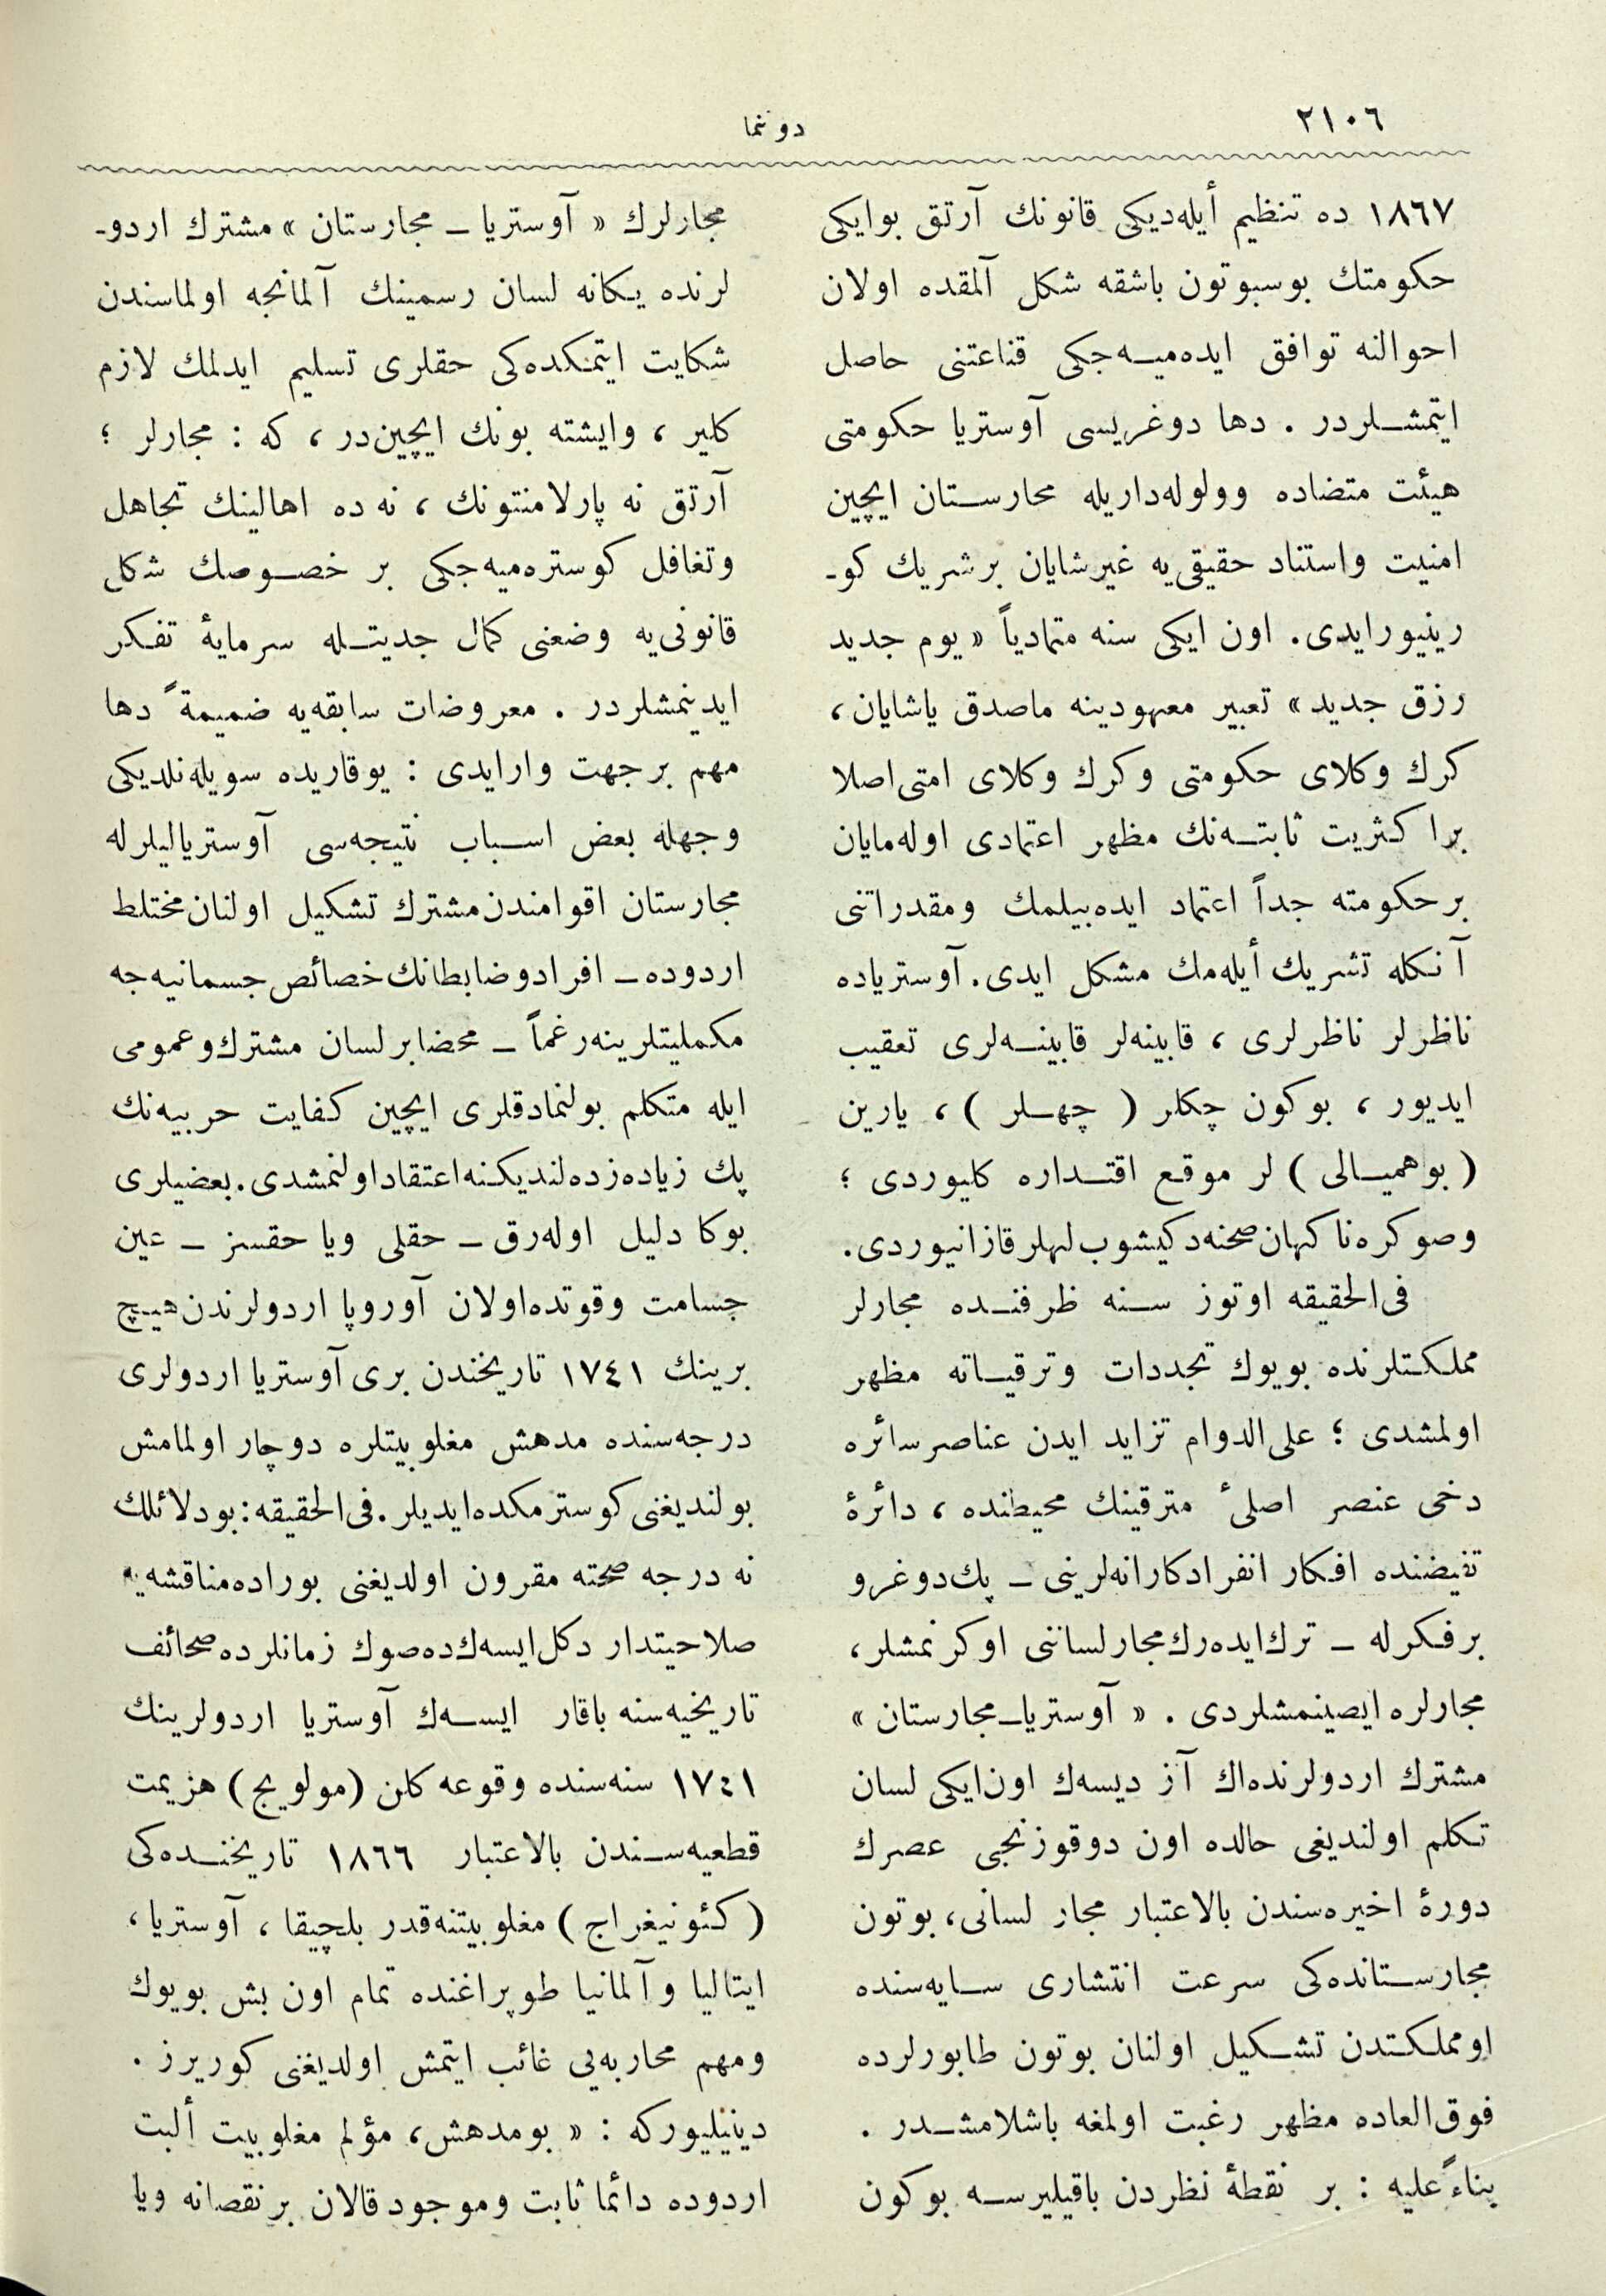 ٢١٠٦
دوننما
١٨٦٧ ده تنظيم أيله‌ديكى قانونك آرتق بوايكى
حكومتك بوسبوتون باشقه شكل آلمقده اولان
احوالنه توافق ايده‌ميه‌جكى قناعتنى حاصل
ايتمشلردر . دها دوغريسى آوستريا حكومتى
هيئت متضاده وولوله‌داريله مجارستان ايچين
امنيت واستناد حقيقى‌يه غيرشايان برشريك كو‍-
رينيورايدى. اون ايكى سنه متمادياً « يوم جديد
رزق جديد » تعبير معهودينه ماصدق ياشايان،
كرك وكلاى حكومتى وكرك وكلاى امتى اصلا
برا كثريت ثابته‌نك مظهر اعتمادى اوله‌مايان
برحكومته جداً اعتماد ايده‌بيلمك ومقدراتنى
آنكله تشريك أيله‌مك مشكل ايدى. آوسترياده
ناظرلر ناظرلرى ، قابينه‌لر قابينه‌لرى تعقيب
ايديور ، بوكون چكلر ( چهلر ) ، يارين
( بوهميالى ) لر موقع اقتداره كليوردى ؛
وصوكره‌ناكهان صحنه‌دكيشوب لهلر قازانيوردى.
فى‌الحقيقه اوتوز سنه ظرفنده مجارلر
مملكتلرنده بويوك تجددات وترقياته مظهر
اولمشدى ؛ على‌الدوام تزايد ايدن عناصرسائره
دخى عنصر اصلئ مترقينك محيطنده ، دائرۀ
تفيضنده افكار انفرادكارانه‌لرينى ـ پك‌دوغرو
برفكرله ـ ترك‌ايده‌رك‌مجارلساننى اوكرنمشلر،
مجارلره ايصينمشلردى . « آوسترياـ مجارستان »
مشترك اردولرنده‌اك آز ديسه‌ك اون‌ايكى لسان
تكلم اولنديغى حالده اون دوقوزنجى عصرك
دورۀ اخيره‌سندن بالاعتبار مجار لسانى، بوتون
مجارستانده‌كى سرعت انتشارى سايه‌سنده
اومملكتدن تشكيل اولنان بوتون طابورلرده
فوق‌العاده مظهر رغبت اولمغه باشلامشدر .
بناءً عليه : بر نقطۀ نظردن باقيليرسه بوكون
مجارلرك « آوستريا ـ مجارستان » مشترك اردو‍-
لرنده يكانه لسان رسمينك آلمانجه اولماسندن
شكايت ايتمكده‌كى حقلرى تسليم ايدلمك لازم
كلير ، وايشته بونك ايچين‌در ، كه : مجارلر ؛
آرتق نه پارلامنتونك ، نه ده اهالينك تجاهل
وتغافل كوستره‌ميه‌جكى بر خصوصك شكل
قانونى‌يه وضعنى كمال جديتله سرمايۀ تفكر
ايدنمشلردر . معروضات سابقه‌يه ضميمةً دها
مهم برجهت وارايدى : يوقاريده سويله‌نلديكى
وجهله بعض اسباب نتيجه‌سى آوستريالیلرله
مجارستان اقوامندن‌مشترك تشكيل اولنان‌مختلط
اردوده ـ افرادوضابطانك‌خصائص‌جسمانيه‌جه
مكمليتلرينه‌رغماً ـ محضابرلسان مشترك‌وعمومى
ايله متكلم بولنمادقلرى ايچين كفايت حربيه‌نك
پك زياده‌زده‌لنديكنه‌اعتقاداولنمشدى. بعضيلرى
بوكا دليل اوله‌رق ـ حقلى ويا حقسز ـ عين
جسامت وقوتده‌اولان آوروپا اردولرندن‌هيچ
برينك ١٧٤١ تاريخندن برى آوستريا اردولرى
درجه‌سنده مدهش مغلوبيتلره دوچار اولمامش
بولنديغنى كوسترمكده‌ايديلر. فى‌الحقيقه: بودلائلك
نه درجه صحته مقرون اولديغنى بوراده‌مناقشه‌يه
صلاحيتدار دكل‌ايسه‌ك‌ده‌صوك زمانلرده‌صحائف
تاريخيه‌سنه باقار ايسه‌ك آوستريا اردولرينك
١٧٤١ سنه‌سنده وقوعه كلن (مولويج) هزيمت
قطعيه‌سندن بالاعتبار ١٨٦٦ تاريخنده‌كى
( كئونيغراج ) مغلوبيتنه‌قدر بلچيقا ، آوستريا،
ايتاليا وآلمانيا طوپراغنده تمام اون بش بويوك
ومهم محاربه‌يى غائب ايتمش اولديغنى كوريرز .
دينيليوركه : « بومدهش، مؤلم مغلوبيت ألبت
اردوده دائما ثابت وموجود قالان برنقصانه ويا